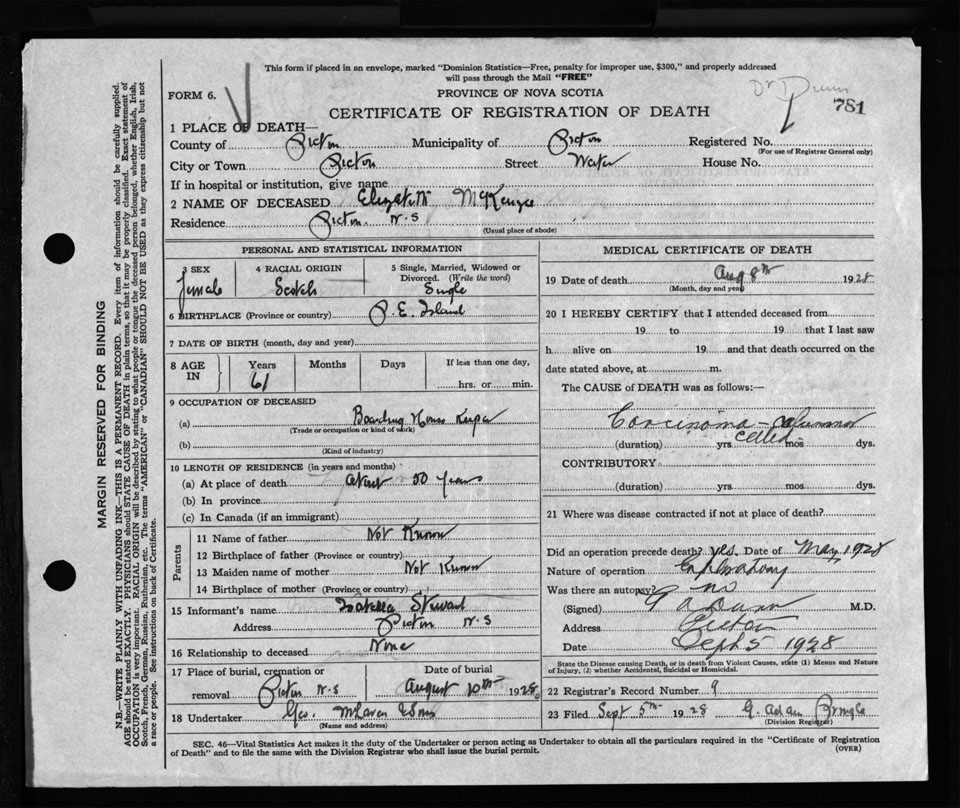 This form if placed in an envelope, marked "Dominion Statistics—Free, penalty for improper use, $300," and properly addressed
will pass through the Mail "FREE"
FORM 6.
PROVINCE OF NOVA SCOTIA
Dr Dunn
781
CERTIFICATE OF REGISTRATION OF DEATH
1 PLACE OF DEATH—
County of Pictou Municipality of Pictou Registered No.
(For use of Registrar General only)
City or Town Pictou Street Water House No.
If in hospital or institution, give name
2 NAME OF DECEASED Elizabeth McKenzie
Residence Pictou N.S
(Usual place of abode)
PERSONAL AND STATISTICAL INFORMATION
3 SEX 4 RACIAL ORIGIN 5 Single, Married, Widowed or
Divorced. (Write the word)
female Scotch Single
6 BIRTHPLACE (Province or country) P.E. Island
7 DATE OF BIRTH (month, day and year)
8 AGE IN Years Months Days If less than one day,
61 hrs. or min.
9 OCCUPATION OF DECEASED
(a) Boarding House Keeper
(Trade or occupation or kind of work)
(b)
(Kind of industry)
10 LENGTH OF RESIDENCE (in years and months)
(a) At place of death about 50 years
(b) In province
(c) In Canada (if an immigrant)
Parents
11 Name of father Not Known
12 Birthplace of father (Province or country)
13 Maiden name of mother Not Known
14 Birthplace of mother (Province or country)
15 Informant's name Isabella Stewart
Address Pictou N.S
16 Relationship to deceased None
17 Place of burial, cremation or Date of burial
removal Pictou N.S August 10th 1928
18 Undertaker Geo. McLaren & Sons
(Name and address)
MEDICAL CERTIFICATE OF DEATH
19 Date of death Aug 8th 1928
(Month, day and year)
20 I HEREBY CERTIFY that I attended deceased from
19 to 19 that I last saw
h alive on 19 and that death occurred on the
date stated above, at m.
The CAUSE of DEATH was as follows:—
Carcinoma - columnar
celled
(duration) yrs mos dys.
CONTRIBUTORY
(duration) yrs mos dys.
21 Where was disease contracted if not at place of death?
Did an operation precede death? yes. Date of May, 1928
Nature of operation Exploratory
Was there an autopsy? no
(Signed) G A Dunn M.D.
Address Pictou
Date Sept 5 1928
State the Disease causing Death, or in death from Violent Causes, state (1) Means and Nature
of Injury, (2) whether Accidental, Suicidal or Homicidal.
22 Registrar's Record Number 9
23 Filed Sept 5th 1928 G. Adam Pringle
(Division Registrar)
SEC. 46—Vital Statistics Act makes it the duty of the Undertaker or person acting as Undertaker to obtain all the particulars required in the "Certificate of Registration
of Death" and to file the same with the Division Registrar who shall issue the burial permit.
(OVER)
MARGIN RESERVED FOR BINDING
N.B.—WRITE PLAINLY WITH UNFADING INK—THIS IS A PERMANENT RECORD. Every item of information should be carefully supplied.
AGE should be stated EXACTLY. PHYSICIANS should STATE CAUSE OF DEATH in plain terms, so that it may be properly classified. Exact statement of
OCCUPATION is very important. RACIAL ORIGIN will be described by stating to what people or tongue the deceased person belonged, whether English, Irish,
Scotch, French, German, Russian, Ruthenian, etc. The terms "AMERICAN" or "CANADIAN" SHOULD NOT BE USED as they express citizenship but not
a race or people. See instructions on back of Certificate.